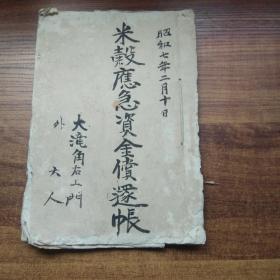 昭和七年二月十日
米穀應急資金償還帳
大滝角右工門
外 大人